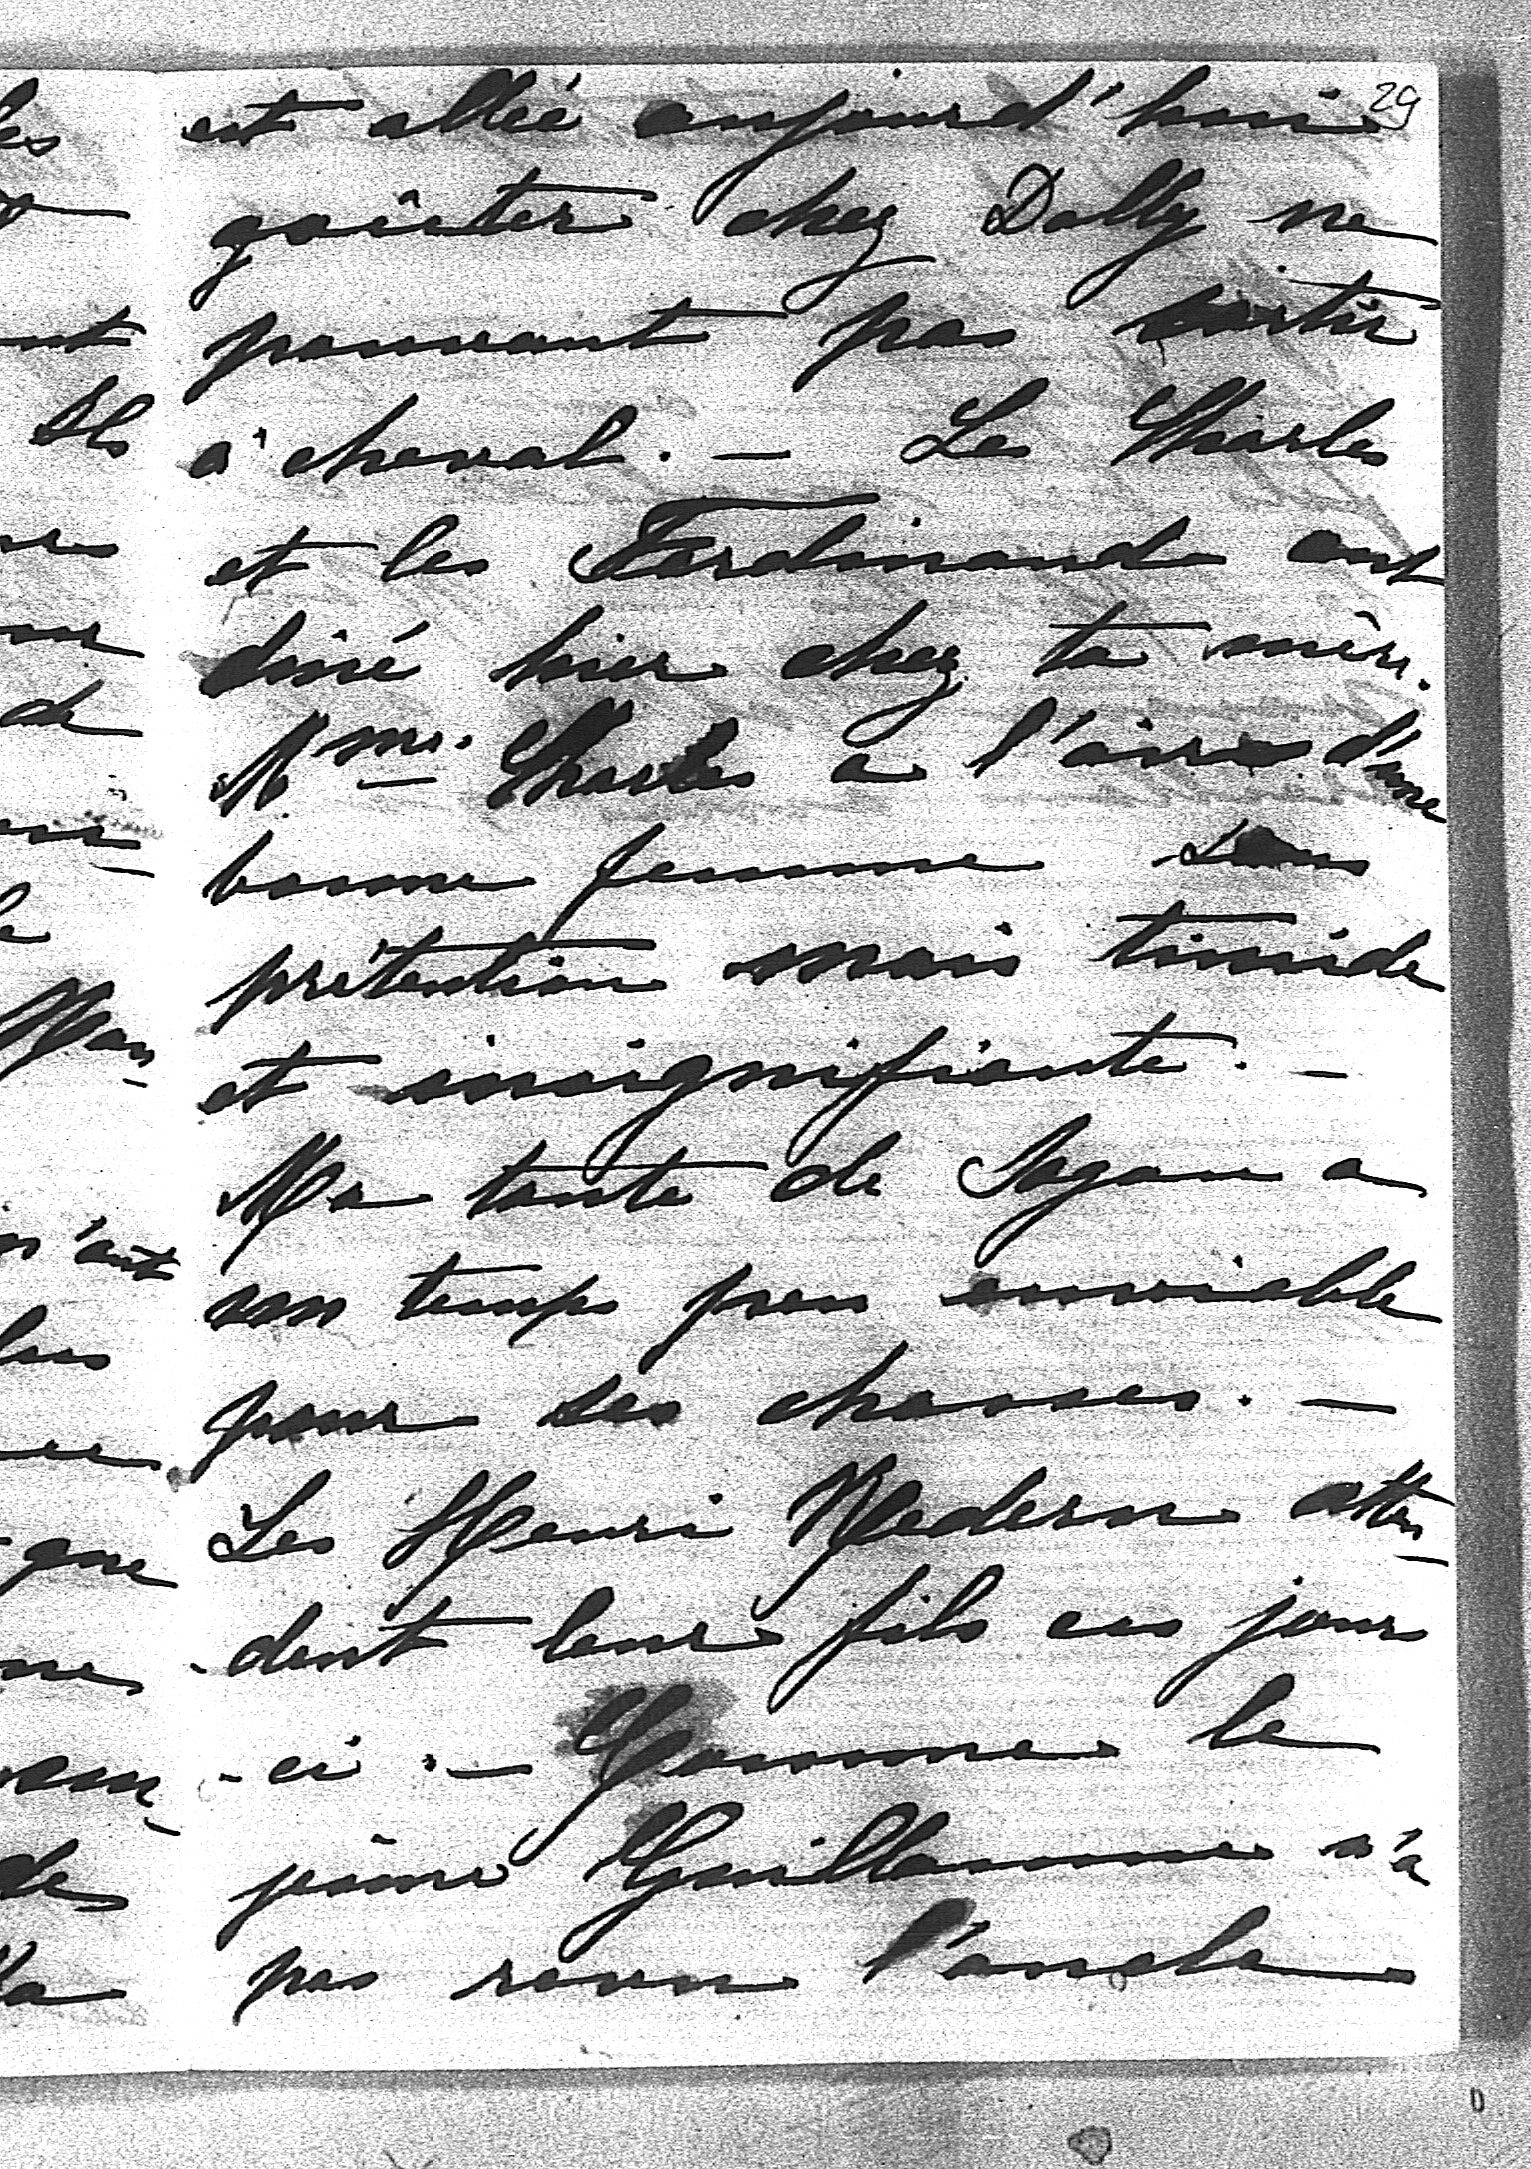 29
est allée aujourd'hui
goûter chez Dolly ne
pouvant pas sortir
à cheval. — Les Charles
et les Ferdinand ont
diné hier chez ta mère.
Mme. Charles a l'air d'une
bonne femme sans
prétention mais timide
et insignifiante. —
Ma tante de Sagan a
son temps peu enviable
pour ses chasses. —
Les Henri attên-
-dent leur fils ces jours
-ci. — Comme le
jeune Guillaume n'a
pas revu l'oncle
les
nt
Ils
res
de
le
n'ont
que
de
la